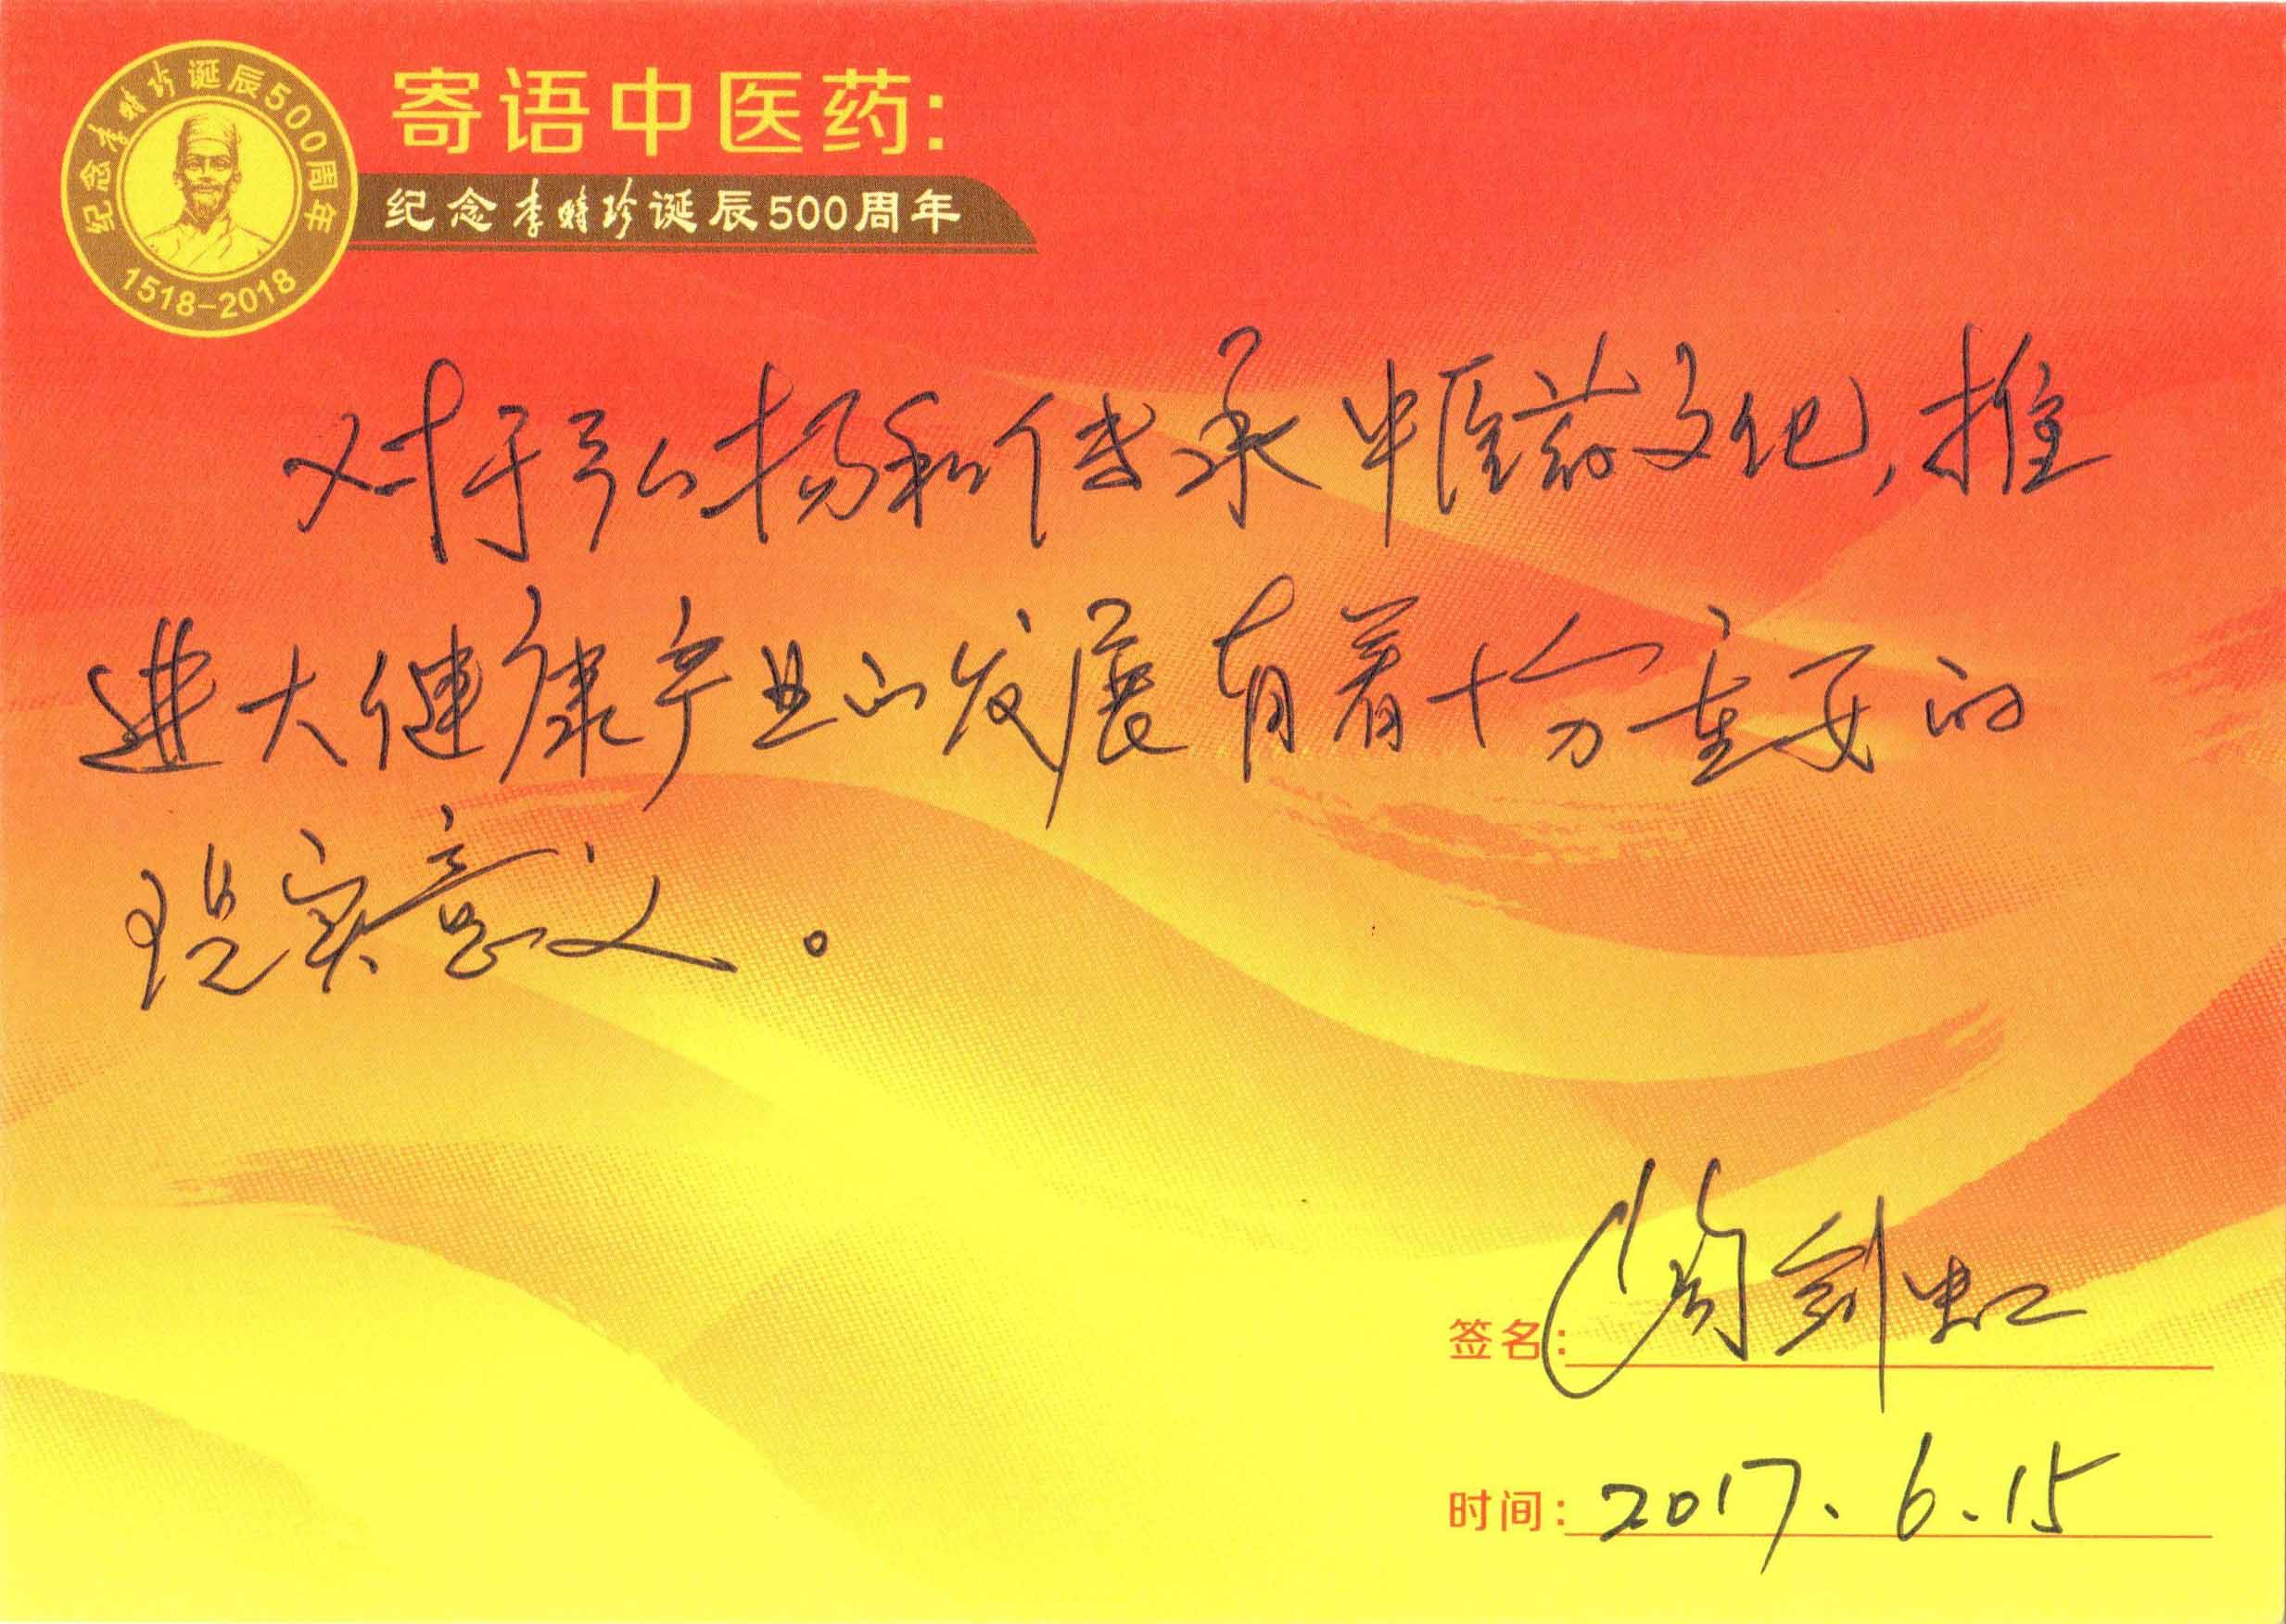 纪念李时珍诞辰500周年
1518-2018
寄语中医药:
纪念李时珍诞辰500周年
对于弘扬和传承中医药文化,推
进大健康产业的发展有着十分重要的
现实意义。
签名:
剑虹
时间: 2017.6.15